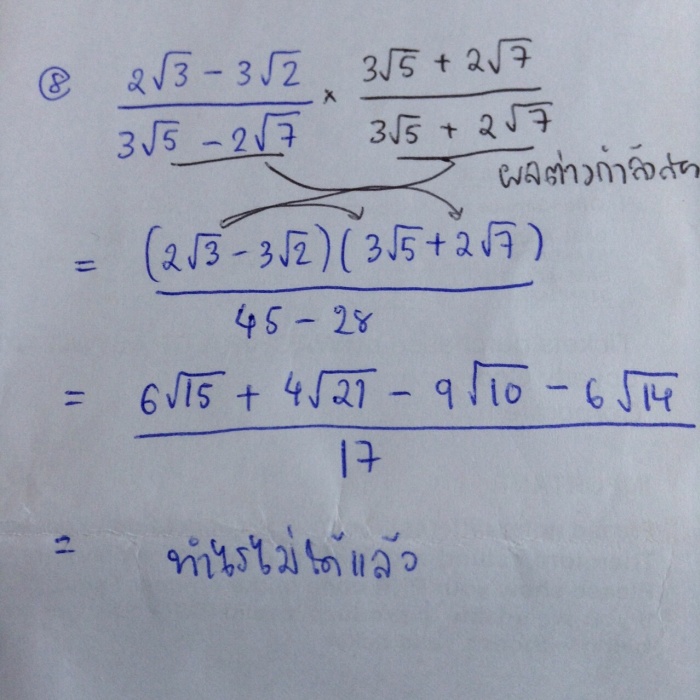 ⑧ (2√3 − 3√2)/(3√5 − 2√7) × (3√5 + 2√7)/(3√5 + 2√7)
ผลต่างกำลัง
= (2√3 − 3√2)(3√5 + 2√7)/(45 − 28)
= (6√15 + 4√21 − 9√10 − 6√14)/17
= ทำไรไม่ได้แล้ว